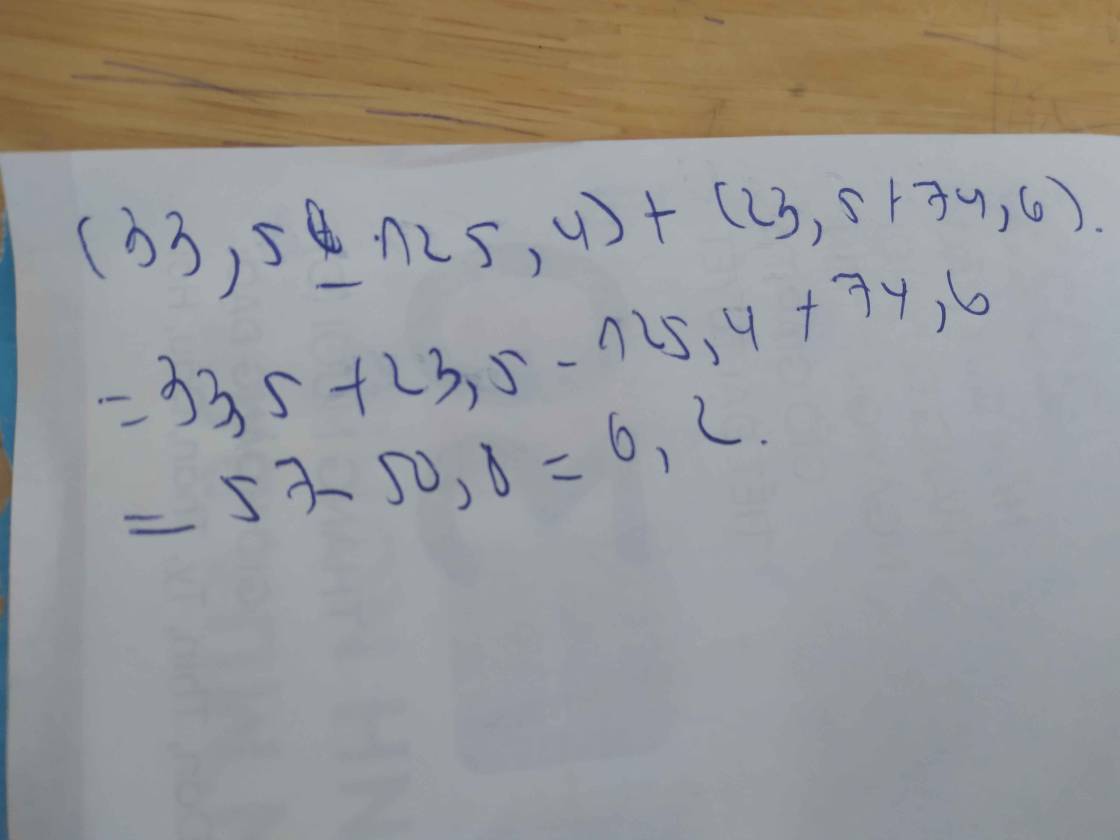 (33,5 - 125,4) + (23,5 + 74,6).
= 33,5 + 23,5 - 125,4 + 74,6
= 57 - 50,8 = 6,2.